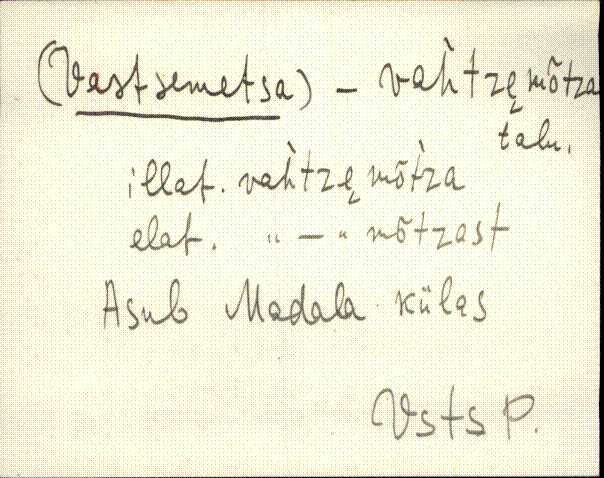 (Vastsemetsa) – vah̀tzę mõtza
talu.
illat. vah̀tzę mõt̀za
elat. " – " mõtzast
Asub Madala külas
Vsts P.